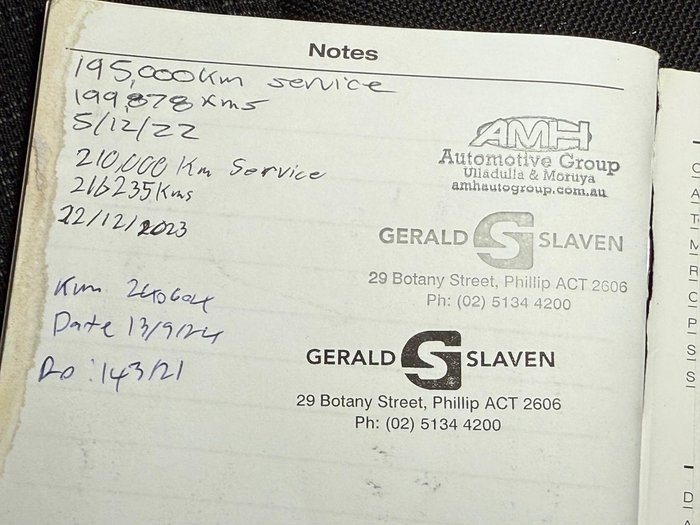 Notes
195,000km service
199,878 Kms
5/12/22
AMH
Automotive Group
Ulladulla & Moruya
amhautogroup.com.au
210,000 Km Service
216235 Kms
22/12/2023
GERALD S SLAVEN
29 Botany Street, Phillip ACT 2606
Ph: (02) 5134 4200
Km 240604
Date 13/9/24
Ro: 143121
GERALD S SLAVEN
29 Botany Street, Phillip ACT 2606
Ph: (02) 5134 4200
C
A
T
M
R
C
P
S
S
D